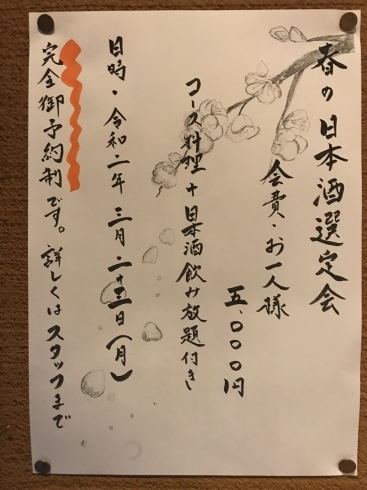 春の日本酒選定会
会費・お一人様
五、〇〇〇円
コース料理+日本酒飲み放題付き
日時・令和二年 三月二十三日(月)
完全御予約制です。詳しくはスタッフまで